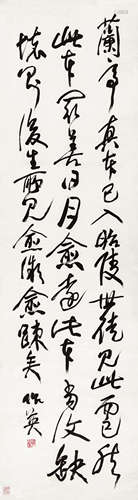 蘭亭真本已入昭陵世徒見此而已然
此本最善日月愈遠此本當復缺
壞則後生所見愈微愈踈矣